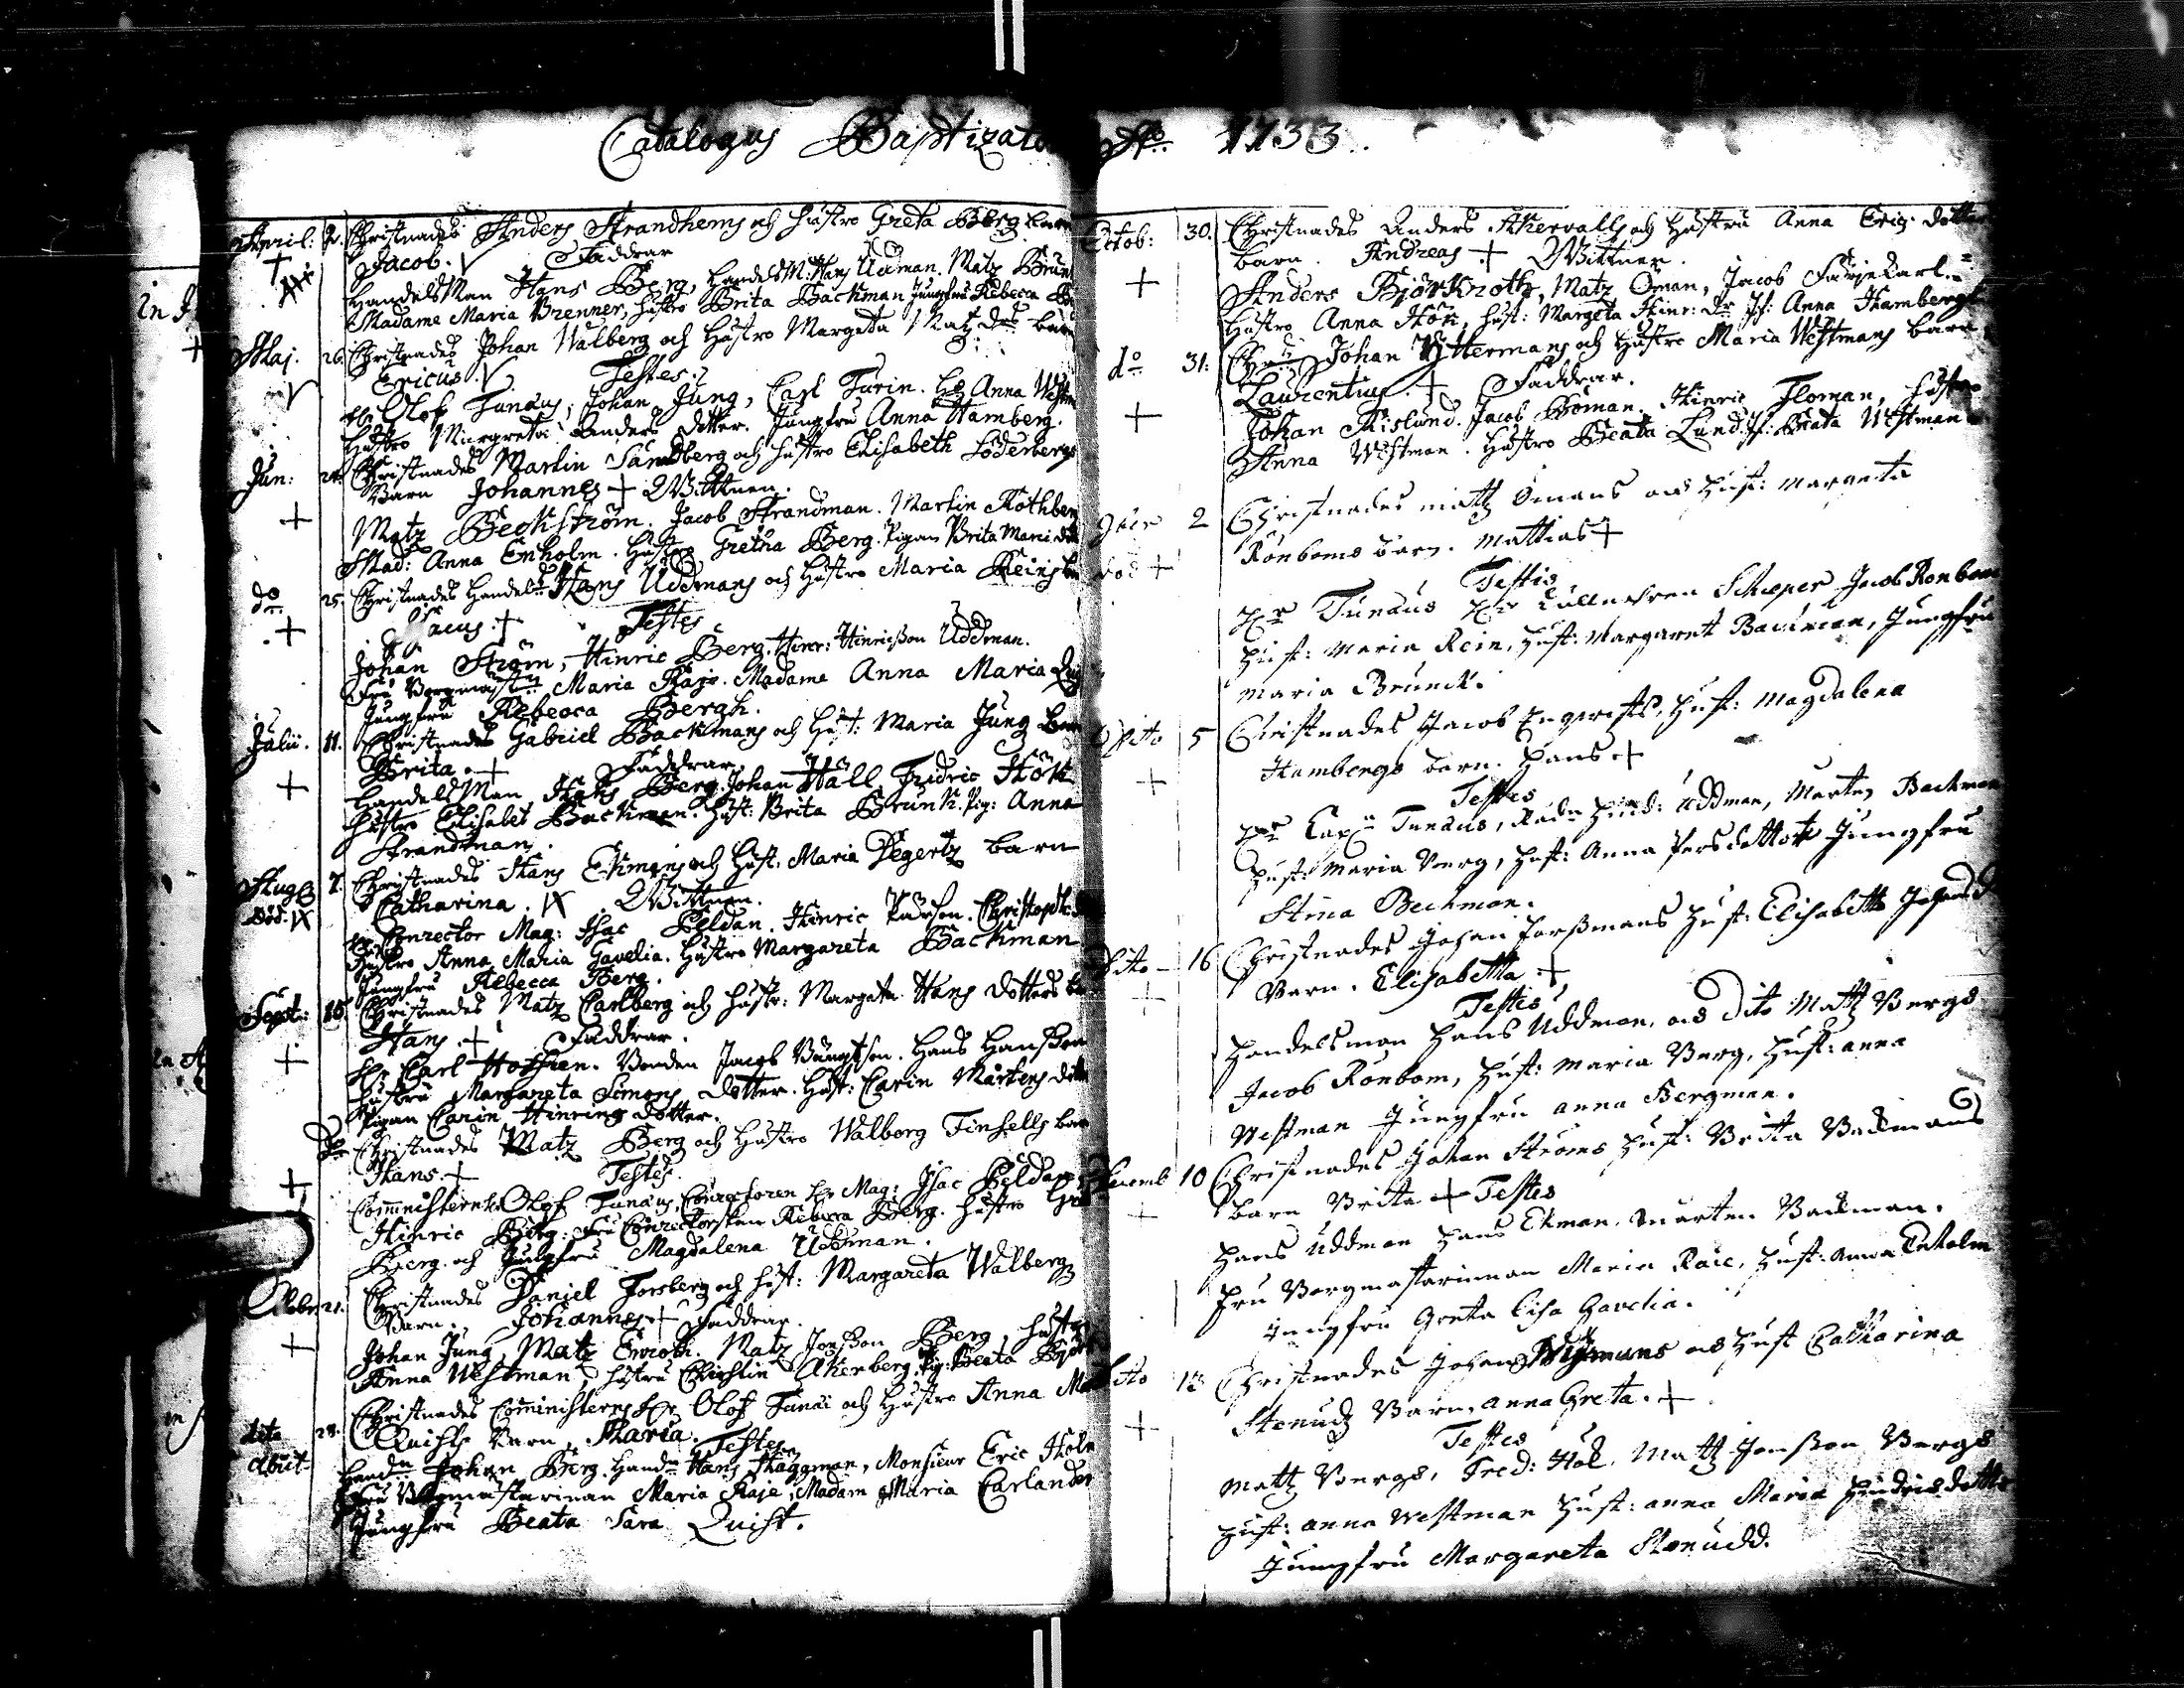 Catalogus Baptizato
Ao 1733.
April: 2. Christnades Anders Strandhems och hustro Greta Berg barn
Jacob. Faddrar
HandelsMan Hans Berg, HandelsM: Hans Uddman. Matz Brun
Madame Maria Brenner, hustro Brita Backman Jungfru Rebecca
Maj. 26. Christnades Johan Walberg och hustro Margeta Matz dr barn
Ericus. Testes.
Hr Olof Tunæus, Johan Jung, Carl Turin. Anna Westm
hustro Margreta Anders dotter. Jungfru Anna Hamberg.
Jun: 24. Christnades Martin Sandberg och hustro Elisabeth Söderbergs
Barn Johannes + Wittnen.
Matz Beckström. Jacob Strandman. Martin Rothber
Mad: Anna Enholm. Hustro Gretha Berg. Pigan Brita
do 25. Christnades Handels Hans Uddmans och hustro Maria
Isacus + Testes
Johan Ström, Hinric Berg. Hinr: Hinrichson Uddman.
Fru Borgmäst Maria Raje. Madame Anna Maria
Jungfru Rebecca Bergh.
Julii. 11. Christnades Gabriel Backmans och Hust: Maria Jung barn
Brita. + Faddrar.
HandelsMan Hans Berg. Johan Häll Fridric Hök
hustro Elisabet Backman. Hust: Brita Brunk. Pig: Anna
Strandman.
Aug 7. Christnades Hans Ekmans och Hust: Maria Degertz barn
Död. Catharina. Wittnen.
Conrector Mag: Isac Peldan. Hinric Pärson. Christoph
hustro Anna Maria Gavelia. Hustro Margareta Backman
Jungfru Rebecca Berg.
Sept: 16. Christnades Matz Carlberg och hustr: Margeta Hans dotters
Hans. + Faddrar.
Hr Carl Hofhren. Bonden Jacob Bengtson. Hans Hansson
hustru Margareta Simons dotter. Hust: Carin Mårtens
Pigan Carin Hinrics dotter.
do Christnades Matz Berg och Hustro Walborg Finhells bar
Hans. + Testes.
Comministern Hr Olof Tunæus, Conrectoren Hr Mag: Isac Peldan
Hinric Berg. Fru Conrectorskan Rebecca Berg. Hustro
Berg. och Jungfru Magdalena Uddman.
21. Christnades Daniel Forsberg och hust: Margareta Walberg
Barn. Johannes + Faddrar.
Johan Jung, Matz Enroth. Matz Jonsson Berg, hustro
Anna Westman, hustru Christin Åkerberg. Pig: Beata
dito 28. Christnades Comministerns Hr Olof Tunæi och Hustro Anna
obiit Quists Barn Maria. Testes
Handn Johan Berg. Handn Hans Haggman, Monsieur Eric Holm
Fru Borgmästarinnan Maria Raje, Madam Maria Carlander
Jungfru Beata Sara Quist.
Octob: 30. Christnades Anders Åkervalls och Hustru Anna Eric dotter
barn. Andreas + Wittnen.
Anders Björkroth, Matz Öman, Jacob Färjekarl.
Hustro Anna Hök, hust: Margeta Hinr: Dr Jf: Anna Hamberg
do 31. Chr: Johan Wittermans och Hustro Maria Westmans barn
Laurentius. + Faddrar.
Johan Åslund. Jacob Boman. Hinric Floman, hustro
Anna Westman. Hustro Beata Lund. Jf: Beata Westman
9ber 2 Christnades Matz Ömans och Hust: Margeta
död + Rönboms barn. Mattias +
Testis
Hr Tunæus Hr Schæper Jacob Rönbom
Hust: Maria Rein, Hust: Margaret Backman, Jungfru
Maria Brunck.
Dito 5 Christnades Jacob Engqvists, Hust: Magdalena
Hambergs barn. Hans +
Testes
Hr Tunæus, Hind: Uddman, Morten Backman
Hust: Maria Berg, Hust: Anna Persdotter Jungfru
Stina Beckman.
Dito 16 Christnades Johan Forssmans Hust: Elisabetta
Barn. Elisabetta +
Testes
Handelsman Hans Uddman, och dito Matz Bergs
Jacob Rönbom, Hust: Maria Berg, Hust: Anna
Westman Jungfru Anna Bergman.
10 Christnades Johan Ströms Hust: Britta Backmans
barn Brita + Testes
Hans Uddman Hans Ekman. Morten Backman.
Fru Borgmästarinnan Maria Raie, Hust: Anna Enholm
Jungfru Greta Lisa Gavelia.
Dito 13 Christnades Johan Wijmans och Hust Catharina
Stenudz Barn, Anna Greta. +
Testes
Matz Bergs, Fred: Hök. Matz Jonsson Bergs
Hust: Anna Westman Hust: Anna Maria Hindricsdotter
Jungfru Margareta Stenudd.